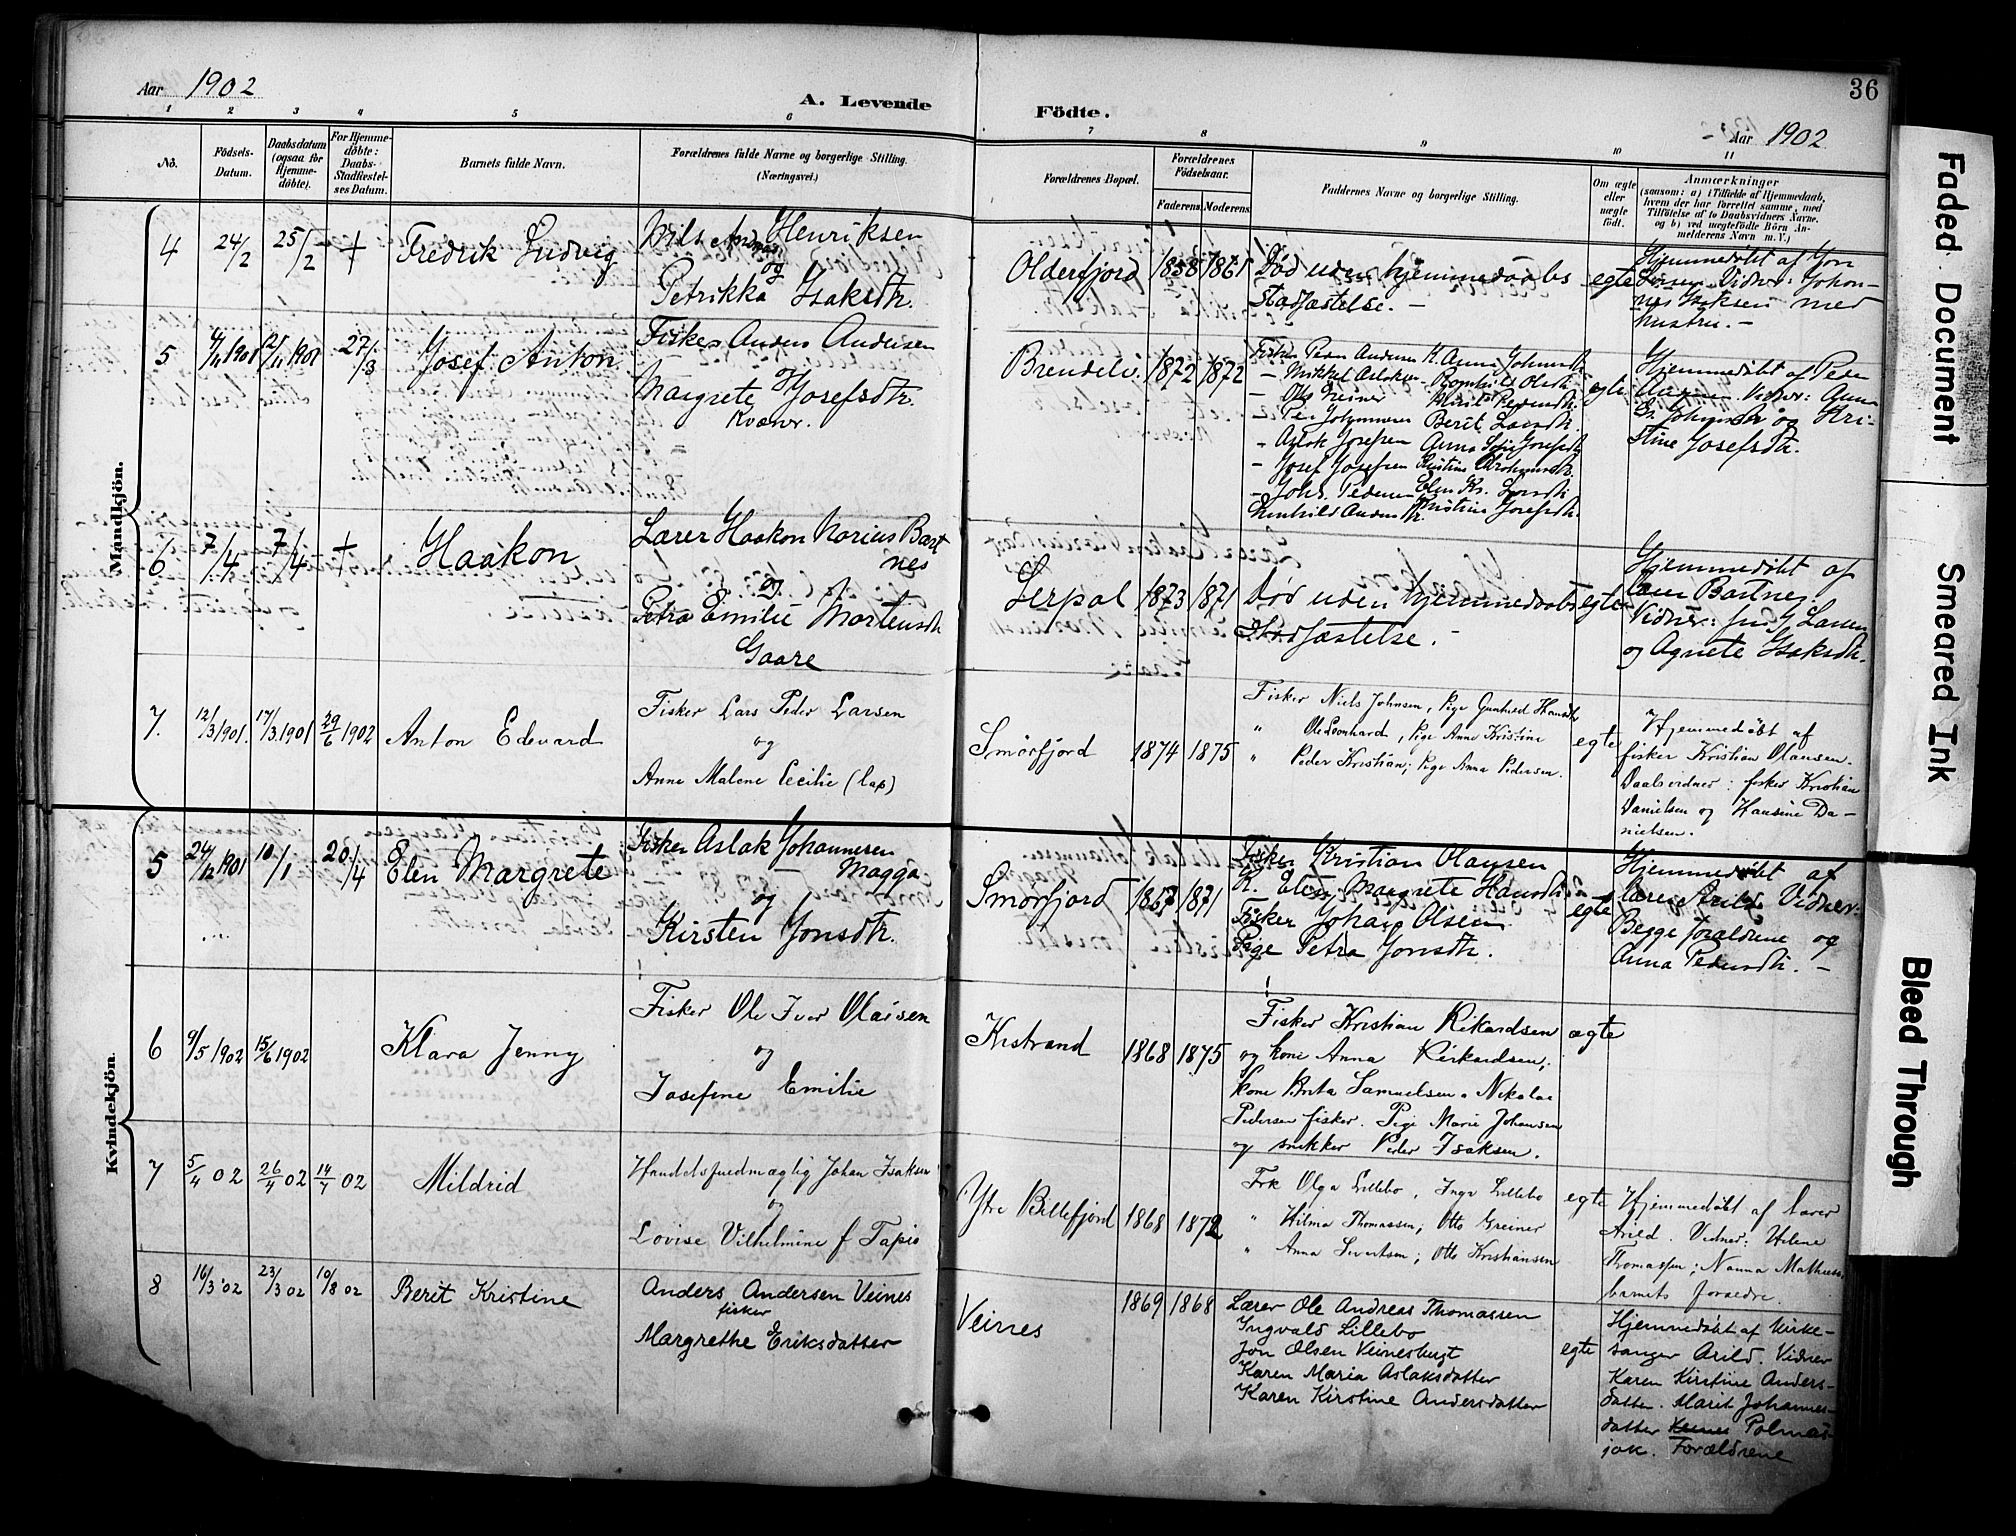 36
Aar 1902
A. Levende
Födte.
Aar 1902
1 2 3 4 5 6 7 8 9 10 11
No.
Födsels-
Datum.
Daabsdatum
(ogsaa for
Hjemme-
döbte).
For Hjemme-
döbte:
Daabs-
Stadfæstel-
ses Datum.
Barnets fulde Navn.
Forældrenes fulde Navne og borgerlige Stilling.
(Næringsvei.)
Forældrenes Bopæl.
Forældrenes
Födselsaar.
Faderens. Moderens.
Faddernes Navne og borgerlige Stilling.
Om ægte
eller
uægte
födt.
Anmærkninger
(saasom: a) i Tilfælde af Hjemmedaab,
hvem der har forrettet samme, med
Tilföielse af to Daabsvidners Navne,
og b) ved uægtefödte Börn An-
melderens Navn m. V.)
Mandkjön.
4
24/2
25/2
†
Fredrik Ludvig
Nils Andreas Henriksen
og
Petrikka Isaksdtr.
Olderfjord
1858
1861
Död uden hjemmedaabs
stadfæstelse. –
egte
Hjemmedöbt af Jon
Larsen. Vidner: Johan-
nes Isaksen med
hustru. –
5
4/11 1901
12/11 1901
27/3
Josef Anton
Fisker Anders Andersen
Margrete Josefsdtr.
Kvæner.
Brendelv.
1872
1872
Fisker Peder Andersen K. Anna Johnsdtr
– Mikkel Aslaksen Ragnhild Olsdtr.
– Ole Greiner Marit Pedersdtr.
– Per Johannesen Berit Larsdtr.
– Aslak Josefsen Anna Sofie Josefsdtr
– Josef Josefsen Kristine Abrahamsdtr
– Johs. Pedersen Elen Kr. Larsdtr.
Gunhild Andersdtr. Kristine Josefsdtr.
egte.
Hjemmedöbt af Peder
Andersen. Vidner: Anna
Gr. Johnsdtr og Kri-
stine Josefsdtr.
6
7/4
7/4
†
Haakon
Lærer Haakon Norius Bart
nes
og
Petra Emilie Mortensdtr
Gaare
Lerpol
1873
1871
Död uden hjemmedaabs
stadfæstelse. –
egte
Hjemmedöbt af
lærer Bartnes
Vidner: fru G Larsen
og Agnete Isaksdtr.
7.
12/3 1901.
17/3 1901
29/6 1902
Anton Edevard
Fisker Lars Peder Larsen
og
Anne Malene Cecilie (lap)
Smörfjord
1874
1875
Fisker Niels Johnsen, Pige Gunhild Hansdtr
" Ole Leonhard, Pige Anne Kristine
" Peder Kristian; Pige Anna Pedersen.
egte
Hjemmedöbt af
fisker Kristian Olaussen.
Daabsvidner: fisker Kristian
Danielsen og Hansine Da-
nielsen.
Kvindekjön.
5
24/12 1901
10/1
20/4
Elen Margrete
Fisker Aslak Johannesen
Magga
og
Kirsten Jonsdtr.
Smörfjord
1867
1871
Fisker Kristian Olaysen
K. Elen Margrete Hansdtr.
Fisker Johan Olsen
Pige Petra Jonsdtr.
egte
Hjemmedöbt af
lærer Arild. Vidner:
Begge forældrene og
Anna Pedersdtr. –
6
9/5 1902
15/6 1902
Klara Jenny
Fisker Ole Iver Olaisen
og
Josefine Emilie
Kistrand
1868
1875
Fisker Kristian Rikardsen
og kone Anna Rikardsen;
kone Brita Samuelsen. Nikolai
Pedersen fisker. Pige Marie Johansen
og snekker Peder Isaksen.
ægte
7
5/4 02
26/4 02
14/7 02
Mildrid
Handelsfuldmægtig Johan Isaksen
og
Lovise Vilhelmine f Tapio
Ytre Billefjord
1868
1872
Frk Olga Lillebo, Inga Lillebo
" Hilma Thomassen; Otto Greiner
" Anna Sivertsen; Otto Kristiansen
egte
Hjemmedöbt af lærer
Arild. Vidner: Helene
Thomassen; Nanna Mathisen
barnets foraedre.
8
16/3 02
23/3 02
10/8 02
Berit Kristine
Anders Andersen Veines
fisker
Margrethe Eriksdatter
Veines
1869
1868
Lærer Ole Andreas Thomassen
Ingvald Lillebo
Jon Olsen Veinesbugt
Karen Maria Aslaksdatter
Karen Kirstine Andersdatter
egte
Hjemmedöbt af Kirke-
sanger Arild. Vidner
Karen Kirstine Anders-
datter. Marit Johannes-
datter Veines Polmas-
jok. Forældrene
Faded Document
Smeared Ink
Bleed Through